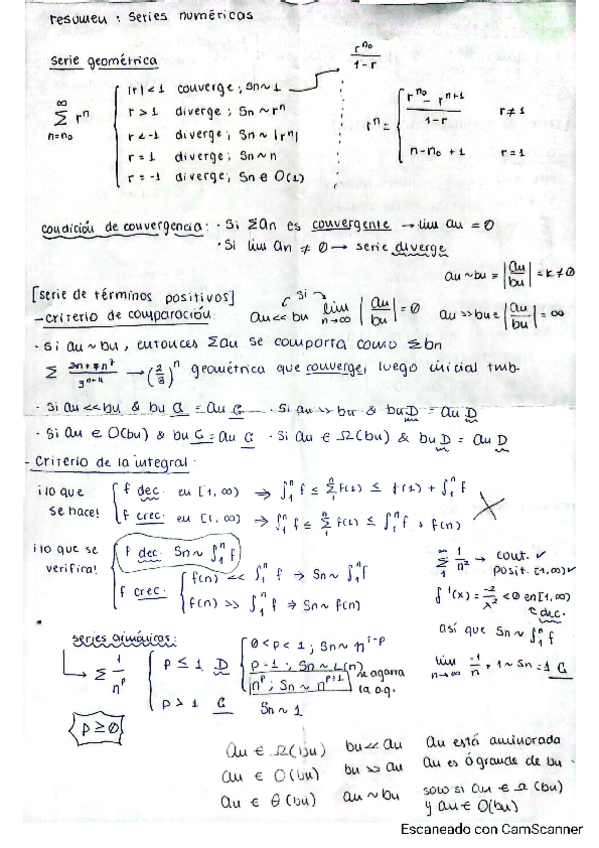 resumen : series numéricas
serie geométrica
∞ Σ n=n₀ rⁿ
|r| < 1 converge ; Sn ~ 1 → r^n₀ / 1-r
r > 1 diverge ; Sn ~ rⁿ
r < -1 diverge ; Sn ~ |rⁿ|
r = 1 diverge ; Sn ~ n
r = -1 diverge ; Sn ∈ O(1)
rⁿ = { r^n₀ - r^n+1 / 1-r r ≠ 1
n-n₀ + 1 r = 1
condición de convergencia: · Si Σan es convergente → lim an = 0
· Si lim an ≠ 0 → serie diverge
an ~ bn = |an/bn| = k ≠ 0
[serie de términos positivos]
- criterio de comparación: si an << bn lim n→∞ |an/bn| = 0 an >> bn = |an/bn| = ∞
· Si an ~ bn, entonces Σan se comporta como Σbn
Σ → (2/3)ⁿ geométrica que converge, luego inicial tmb-
· Si an << bn & bn C = an C · Si an >> bn & bn D = an D
· Si an ∈ O(bn) & bn C = an C · Si an ∈ Ω(bn) & bn D = an D
- Criterio de la integral:
¡lo que se hace!
f dec. en [1, ∞) ⇒ ∫₁ⁿ f ≤ Σ₁ⁿ f(1) ≤ f(1) + ∫₁ⁿ f
f crec. en [1, ∞) ⇒ ∫₁ⁿ f ≤ Σ₁ⁿ f(1) ≤ ∫₁ⁿ f + f(n)
¡lo que se verifica!
f dec. Sn ~ ∫₁ⁿ f
f crec. { f(n) << ∫₁ⁿ f ⇒ Sn ~ ∫₁ⁿ f
f(n) >> ∫₁ⁿ f ⇒ Sn ~ f(n)
∞ Σ 1 1/n² → cont. ✓
posit. [1, ∞) ✓
f'(x) = -2/x² < 0 en [1, ∞)
dec.
así que Sn ~ ∫₁ⁿ f
lim n→∞ -1/n + 1 ~ Sn = 1 C
series armónicas:
Σ 1/nᵖ
p ≤ 1 D { 0 < p < 1 ; Sn ~ n^1-p
p = 1 ; Sn ~ L(n)
nᵖ ; Sn ~ n^p+1 se agarra
p > 1 C Sn ~ 1
p ≥ 0
an ∈ Ω(bn) bn << an an está aminorada
an ∈ O(bn) bn >> an an es O grande de bn
an ∈ Θ(bn) an ~ bn solo si an ∈ Ω(bn)
y an ∈ O(bn)
Escaneado con CamScanner